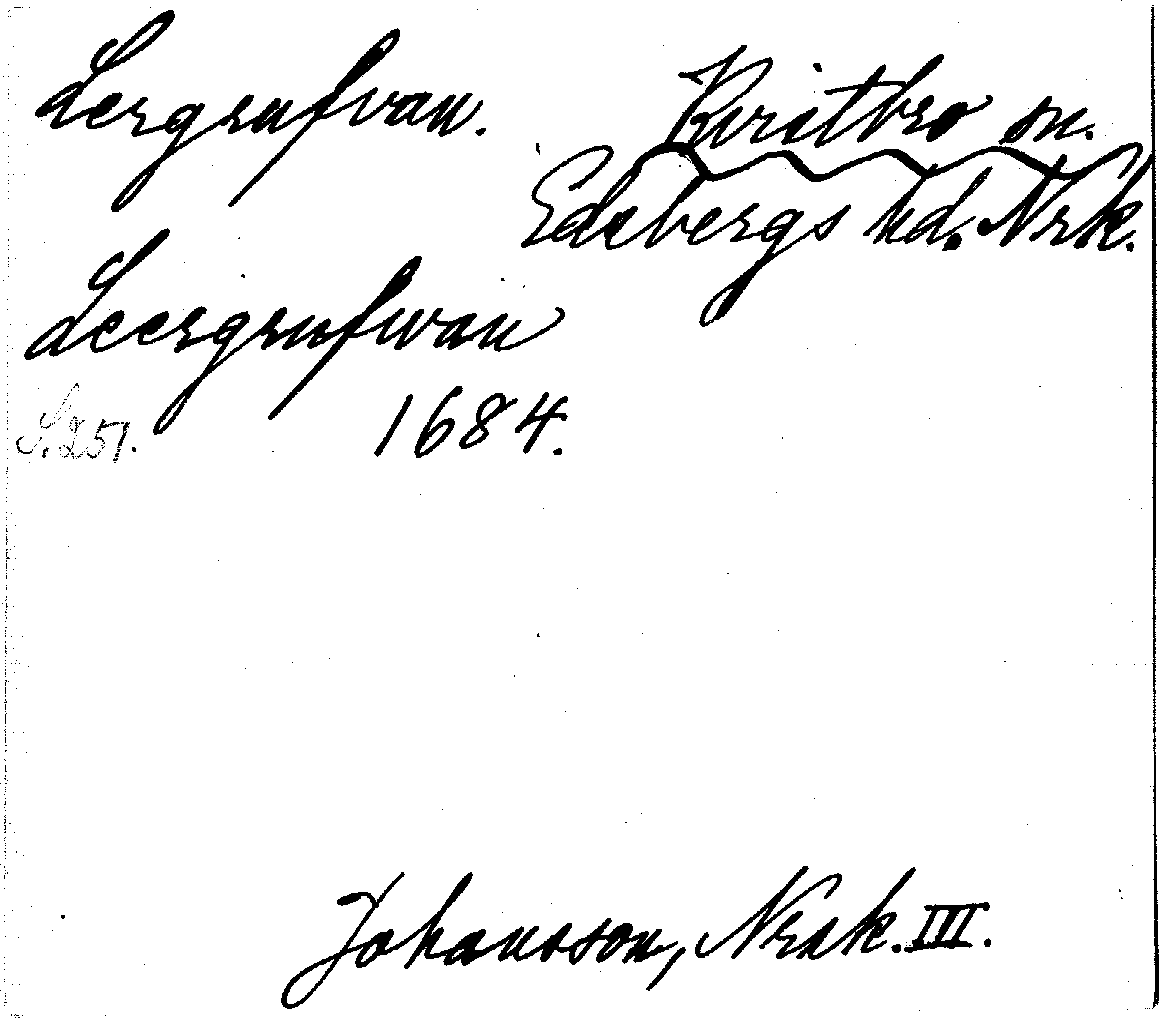 Lergrufvan.
Kvistbro sn.
Edsbergs hd. Nrk.
Leergrufwan
S. 251.
1684.
Johansson, Nrk. III.